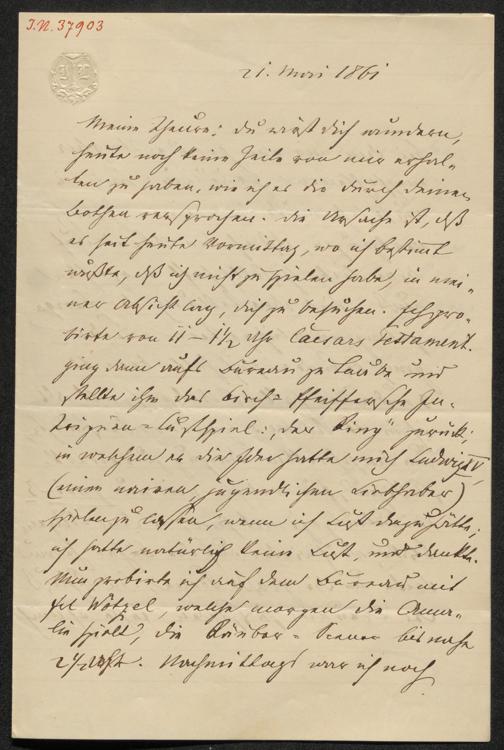 I.N. 37903
21. Mai 1861
Meine Theure! Du wirst dich wundern,
heute noch keine Zeile von mir erhal-
ten zu haben, wie ich es dir durch deinen
Bothen versprochen. Die Ursache ist, daß
es seit heute Vormittag, wo ich bestimmt
wußte, daß ich nicht zu spielen habe, in mei-
ner Absicht lag, dich zu besuchen. Ich pro-
birte von 11 – 1½ Uhr Caesars Testament.
ging dann aufs Bureau zu Laube und
stellte ihm das Birch-Pfeiffersche In-
triguen-Lustspiel: „der Ring" zurück,
in welchem er die Idee hatte mich Ludwig XIV
(einen naiven jugendlichen Liebhaber)
spielen zu lassen, wenn ich Lust dazu hätte;
ich hatte natürlich keine Lust, und dankte.
Nun probirte ich auf dem Bureau mit
Frl Wötzel, welche morgen die Ama-
lia spielt, die Räuber-Scenen bis nahe
2½ Uhr. Nachmittags war ich noch